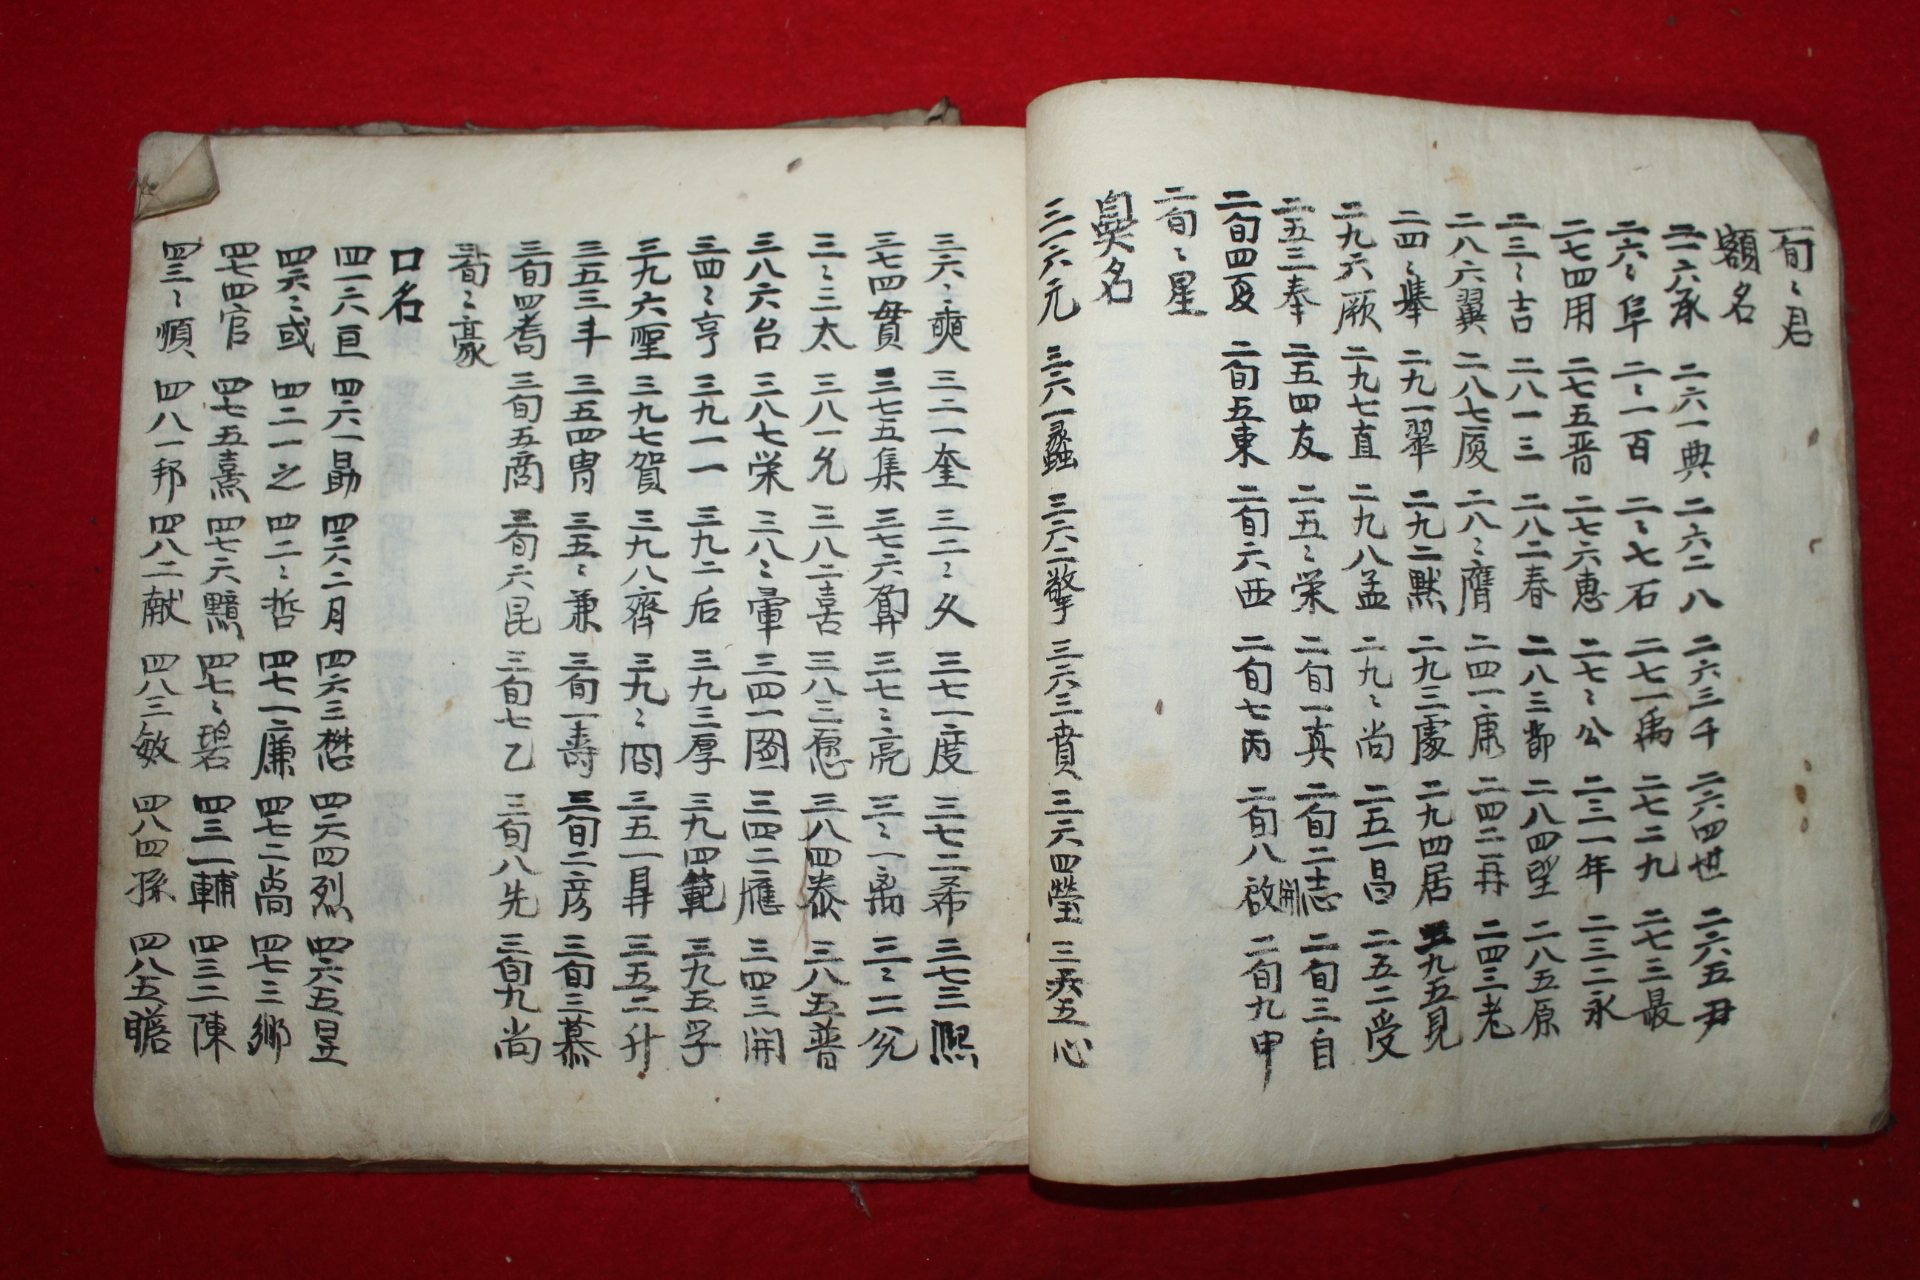 一旬〻君
額名
二一六承 二六一典 二六二八 二六三千 二六四世 二六五尹
二六〻阜 二〻一百 二〻七石 二七一禹 二七二九 二七三最
二七四用 二七五晋 二七六惠 二七〻公 二三一年 二三二永
二三〻吉 二八一三 二八二春 二八三都 二八四望 二八五原
二八六翼 二八七履 二八〻膺 二四一康 二四二再 二四三老
二四〻舉 二九一翠 二九二默 二九三處 二九四居 二九五見
二九六厥 二九七直 二九八孟 二九〻尚 二五一昌 二五二受
二五三奉 二五四友 二五〻栄 二旬一真 二旬二志 二旬三自
二旬四夏 二旬五東 二旬六西 二旬七丙 二旬八啟 二旬九申
二旬〻星
鼻名
三一六元 三六一蠡 三六二擎 三六三賁 三六四瑩 三六五心
三六〻奭 三二一奎 三二〻久 三七一度 三七二希 三七三熙
三七四貫 三七五集 三七六 三七〻亮 三〻一禹 三〻二允
三〻三太 三八一允 三八二喜 三八三愿 三八四泰 三八五普
三八六台 三八七栄 三八〻彙 三四一圖 三四二應 三四三開
三四〻亨 三九一一 三九二后 三九三厚 三九四範 三九五孚
三九六聖 三九七賀 三九八齊 三九〻冏 三五一昇 三五二升
三五三斗 三五四胄 三五〻兼 三旬一壽 三旬二彦 三旬三慕
三旬四耉 三旬五商 三旬六昆 三旬七乙 三旬八先 三旬九尚
三旬〻豪
口名
四一六亘 四六一勗 四六二月 四六三懋 四六四烈 四六五昱
四六〻或 四二一之 四二〻哲 四七一廉 四七二尚 四七三鄉
四七四官 四七五熹 四七六黯 四七〻碧 四三一輔 四三二陳
四三〻順 四八一邦 四八二献 四八三敏 四八四孫 四八五瞻